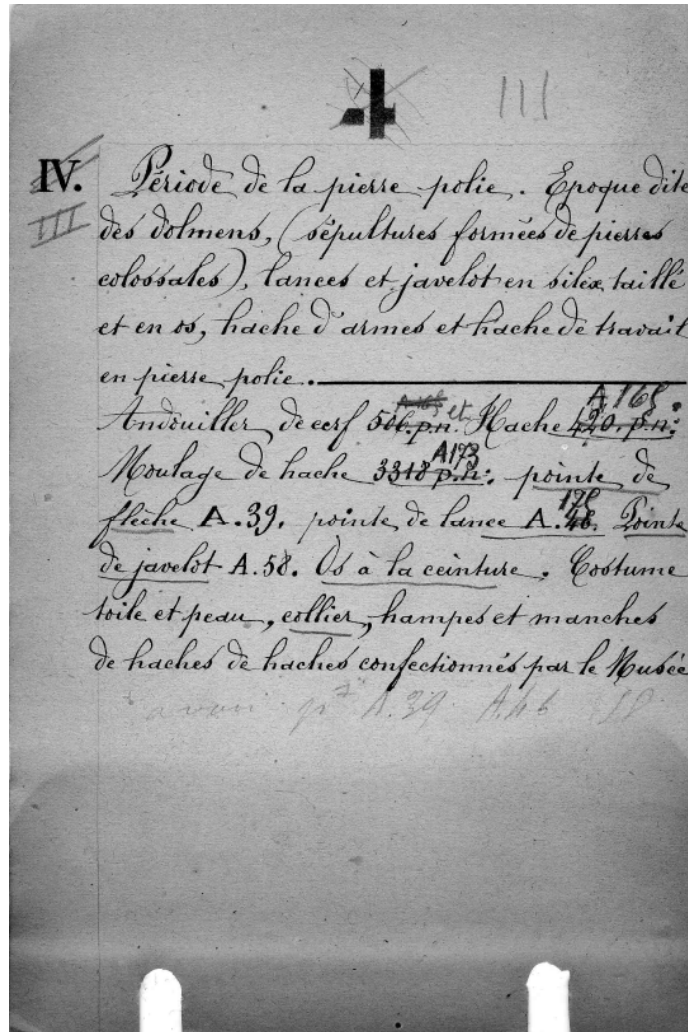 4 III
IV. Période de la pierre polie. Epoque dite
III des dolmens, (sépultures formées de pierres
colossales), lances et javelot en silex taillé
et en os, hache d'armes et hache de travail
en pierre polie.
A 165 A 165
Andouiller de cerf 506. p.n. et Hache 420. p.n:
A173
Moulage de hache 3318 p.n: pointe de
175
flèche A.39. pointe de lance A.46. Pointe
de javelot A.58. Os à la ceinture. Costume
toile et peau, collier, hampes et manches
de haches de haches confectionnés par le Musée
A.39 A.46